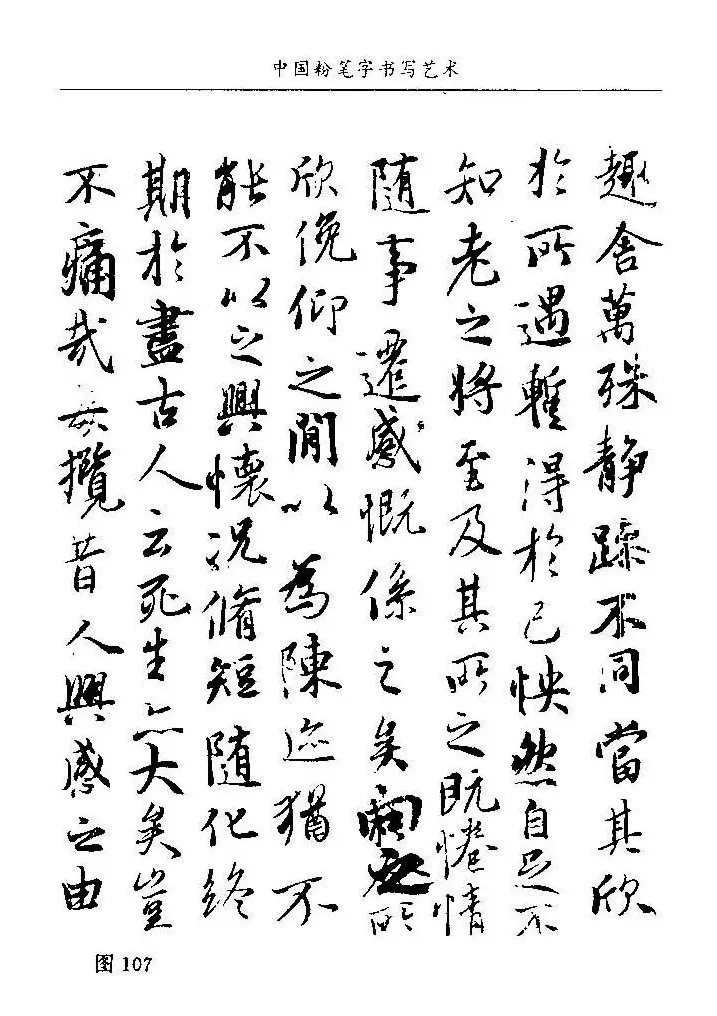 中国粉笔字书写艺术
趣舍萬殊静躁不同當其欣
於所遇暫得於己怏然自足不
知老之將至及其所之既惓情
随事遷感慨係之矣向之所
欣俛仰之閒以為陳迹猶不
能不以之興懷況脩短随化終
期於盡古人云死生亦大矣豈
不痛哉每攬昔人興感之由
图 107